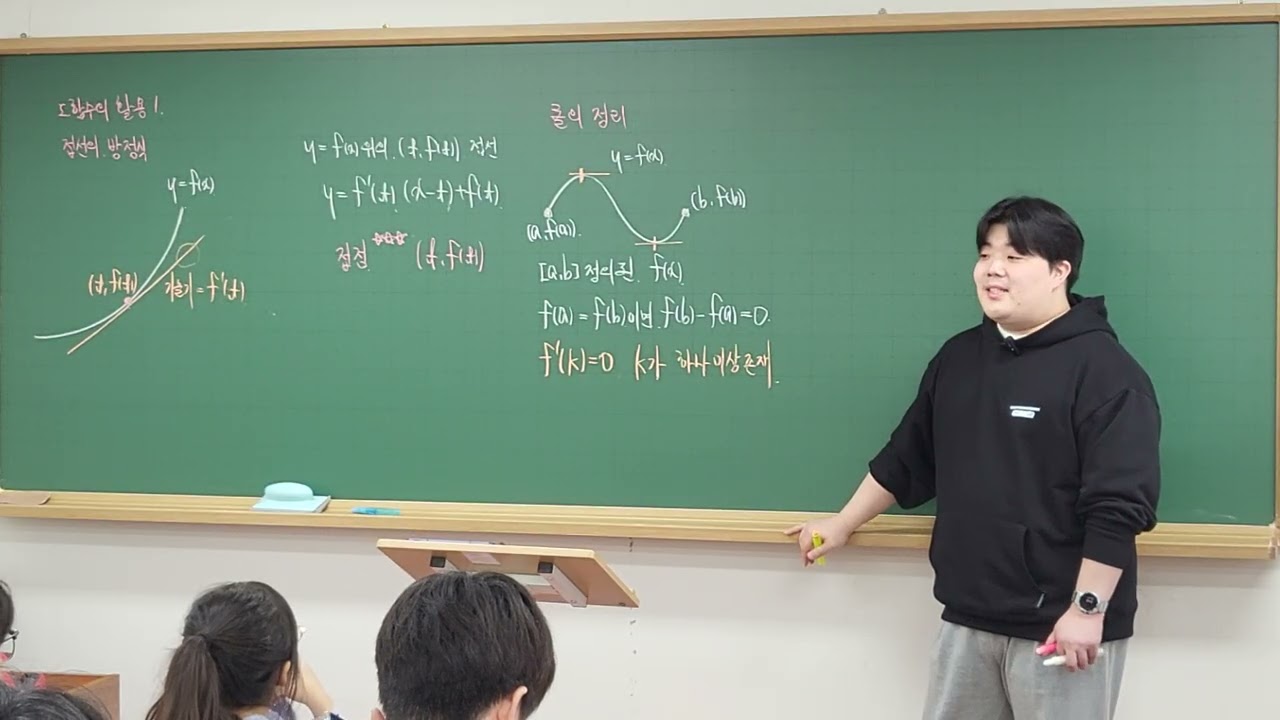 도함수의 활용 1.
접선의 방정식
y=f(x)
(t, f(t))
기울기=f'(t)
y=f(x) 위의 (t, f(t)) 접선
y=f'(t)(x-t)+f(t)
접점 ☆☆☆ (t, f(t))
롤의 정리
y=f(x)
(a, f(a))
(b, f(b))
[a,b] 정의된 f(x)
f(a)=f(b)이면 f(b)-f(a)=0.
f'(k)=0 k가 하나이상존재.